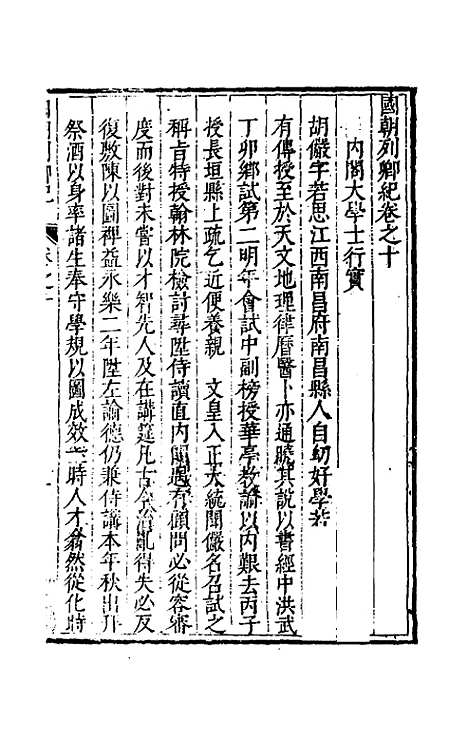 國朝列卿紀卷之十
內閣大學士行實
胡儼字若思江西南昌府南昌縣人自幼好學若
有傳授至於天文地理律曆醫卜亦通曉其說以書經中洪武
丁卯鄉試第二明年會試中副榜授華亭教諭以內艱去丙子
授長垣縣上疏乞近便養親　文皇入正大統聞儼名召試之
稱旨特授翰林院檢討尋陞侍讀直內閣遇有顧問必從容審
度而後對未嘗以才智先人及在講筵凡古今治亂得失必反
復敷陳以圖裨益永樂二年陞左諭德仍兼侍講本年秋出升
祭酒以身率諸生奉守學規以圖成效一時人才翕然從化時